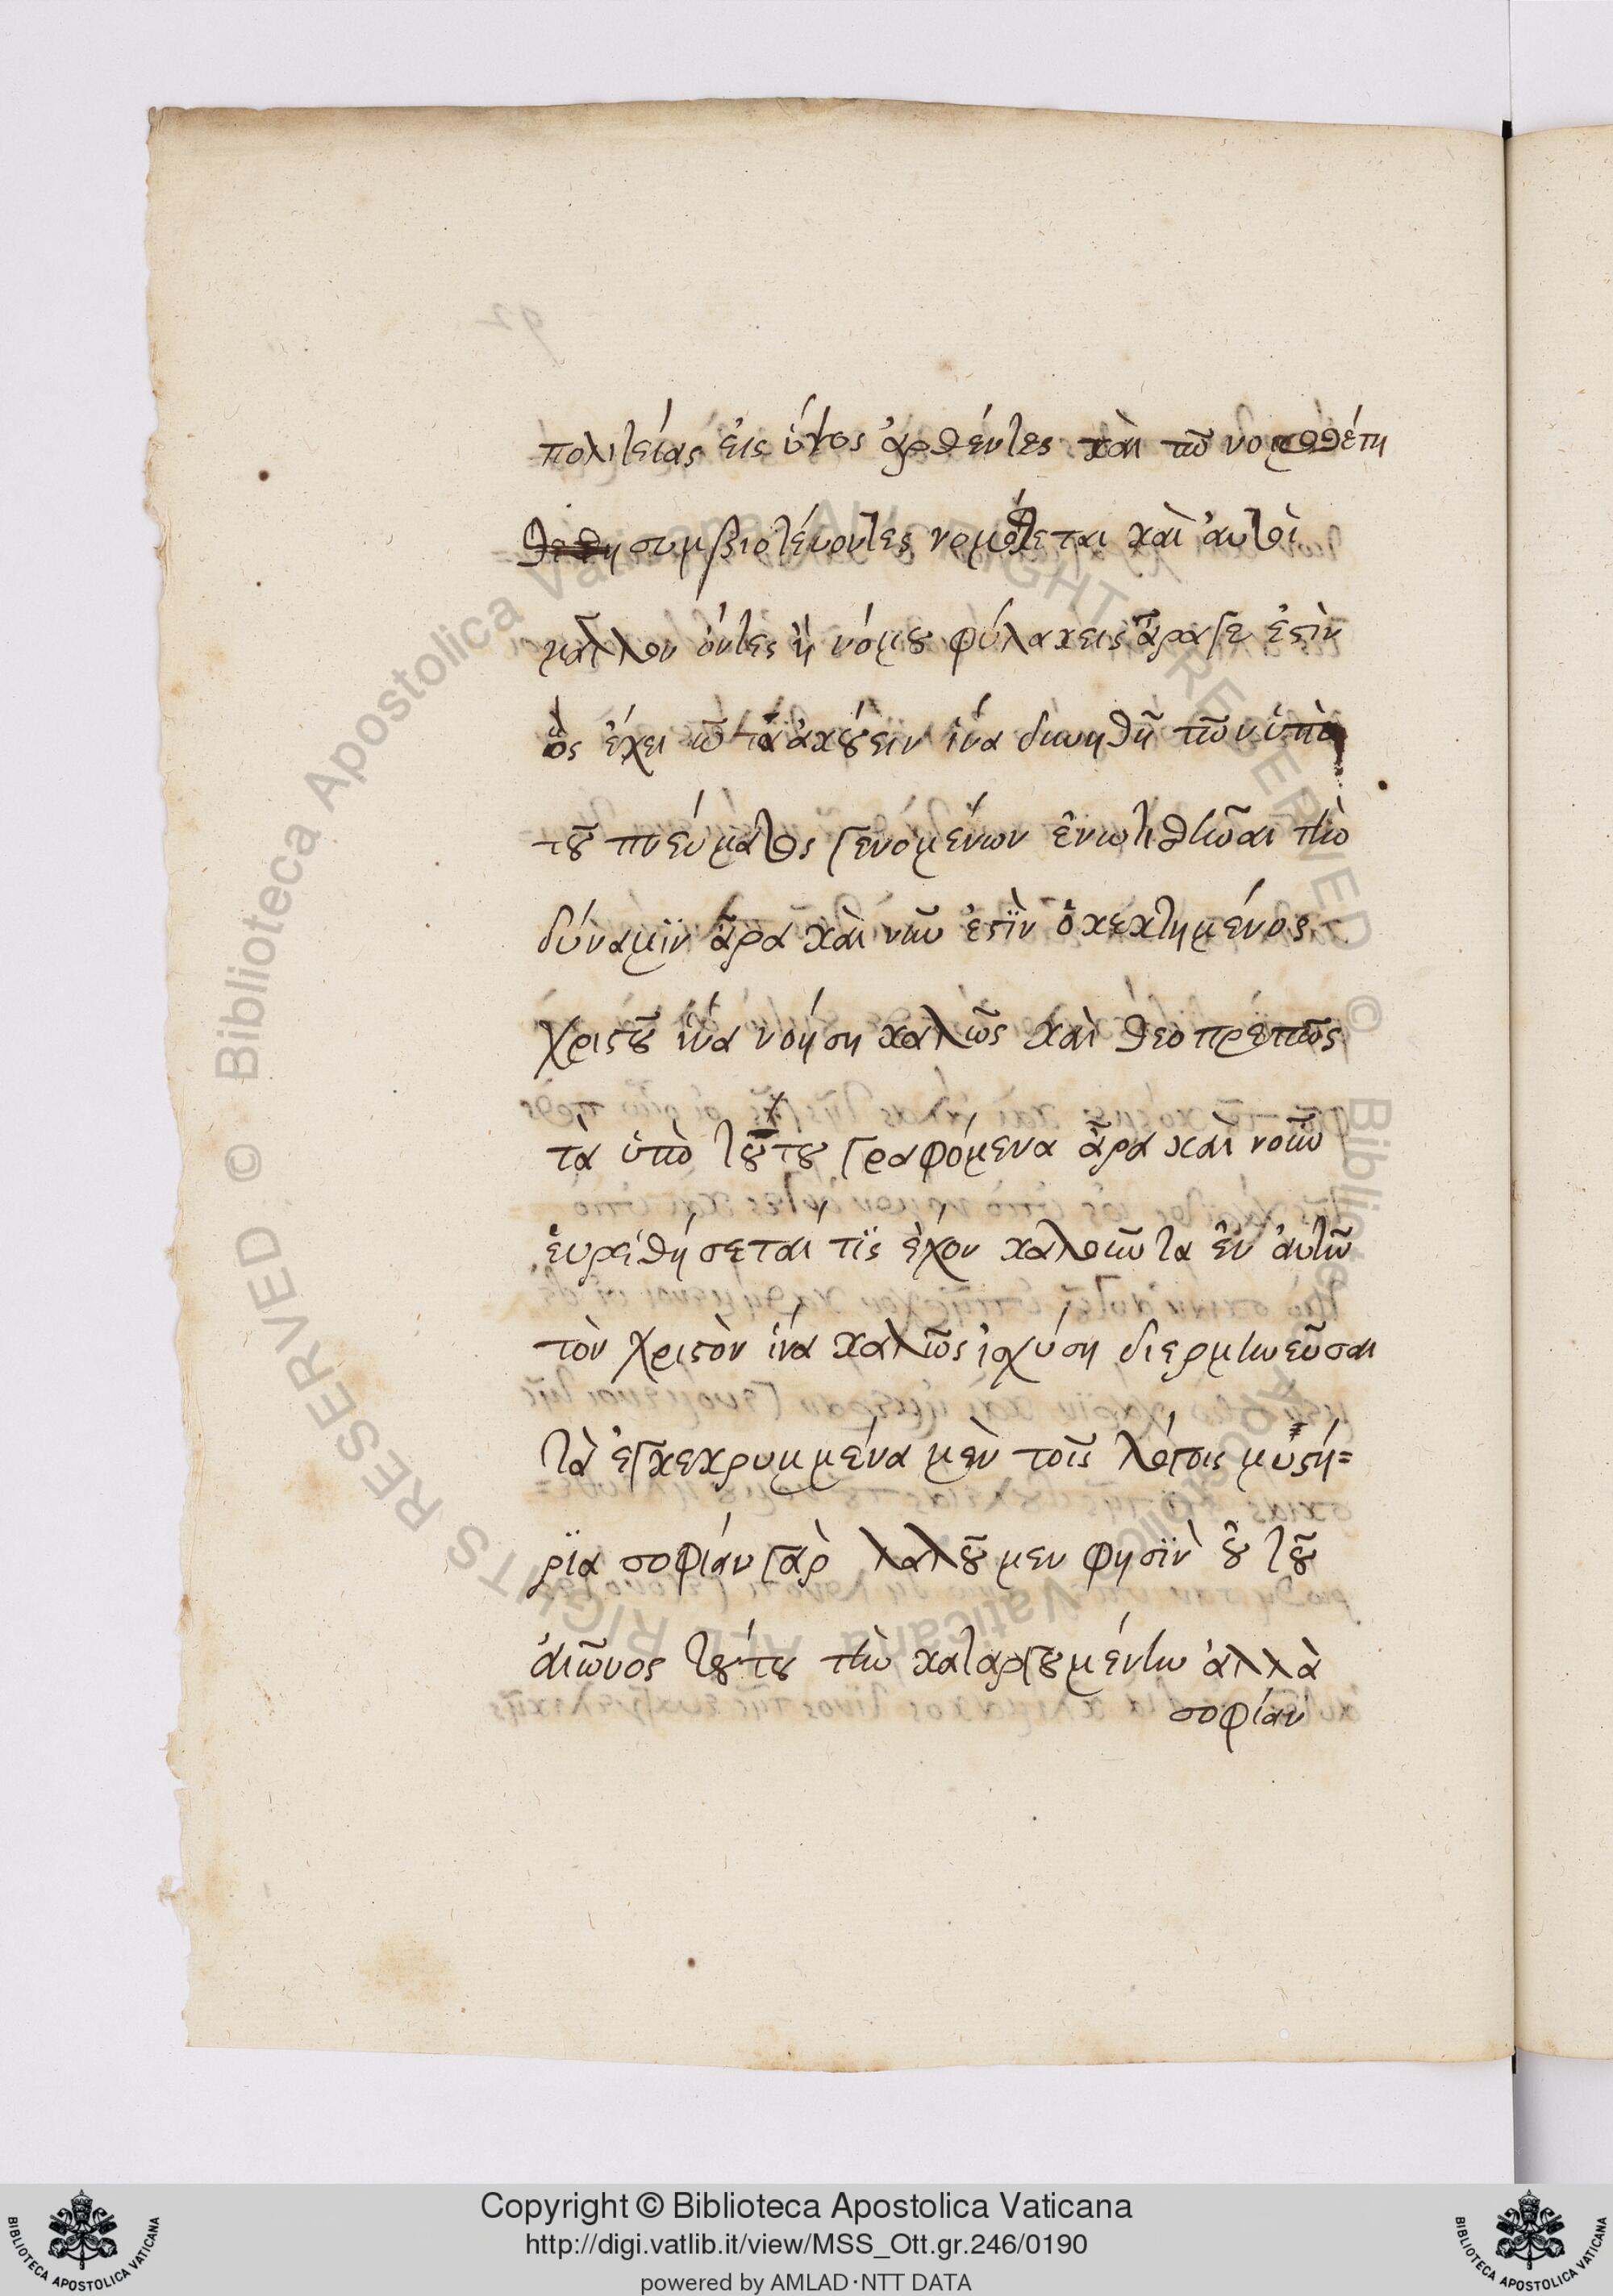 πολιτείας εἰς ὕψος ἀρθέντες καὶ τῶ νομοθέτη
συμβιοτέυοντες νομοθέται καὶ ἀυτοὶ
μᾶλλον ὄντες ἢ νόμου φύλακεις ἆρα γε ἐστὶν
ὃς ἔχει ὦτα ἀκούειν ἵνα δυνηθῆ τῶν ὑπὸ
τοῦ πνεύματος γενομένων ἐνωτισθῆναι τὴν
δύναμϊν ἆρα καὶ νῦν ἐστϊν ὁ κεκτημένος
χριστοῦ ἵνα νοήση καλῶς καὶ θεοπρεπῶς
τὰ ὑπὸ τούτου γραφόμενα ἆρα καὶ νοῦν
ἑυρεθήσεται τὶς ἔχον λαλοῦντα ἐν ἀυτῶ
τὸν χριστὸν ἵνα καλῶς ἰσχύση διερμηνεῦσαι
τὰ ἐγκεκρυμμένα μὲν τοῖς λόγοις μυστή=
ρϊα σοφίαν γὰρ λαλοῦμεν φησϊν οὐ τοῦ
ἀιῶνος τούτου τὴν καταργουμένην ἀλλὰ
σοφίαν
Copyright © Biblioteca Apostolica Vaticana
http://digi.vatlib.it/view/MSS_Ott.gr.246/0190
powered by AMLAD·NTT DATA
BIBLIOTECA APOSTOLICA VATICANA
BIBLIOTECA APOSTOLICA VATICANA